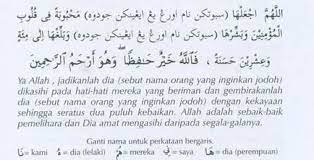 اللَّهُمَّ اجْعَلْهَا (سبوتكن نام اورڠ يڠ ايڠينكن جودوه) مَحْبُوبَةً فِي قُلُوبِ
الْمُؤْمِنِيْنَ وَبَشِّرْهَا (سبوتكن نام اورڠ يڠ ايڠينكن جودوه) وَبَلِّغْهَا إِلَى مِئَةٍ
وَعِشْرِيْنَ حَسَنَةً ، فَاللَّهُ خَيْرٌ حَفِظًا وَهُوَ أَرْحَمُ الرَّحِمِيْنَ
Ya Allah , jadikanlah dia (sebut nama orang yang inginkan jodoh)
dikasihi pada hati-hati mereka yang beriman dan gembirakanlah
dia (sebut nama orang yang inginkan jodoh) dengan kekayaan
sehingga seratus dua puluh kebaikan. Allah adalah sebaik-baik
pemelihara dan Dia amat mengasihi daripada segala-galanya.
Ganti nama untuk perkataan bergaris.
نَا = kami هُ = dia (lelaki) هُمْ = mereka لِي = saya هَا = dia (perempuan)